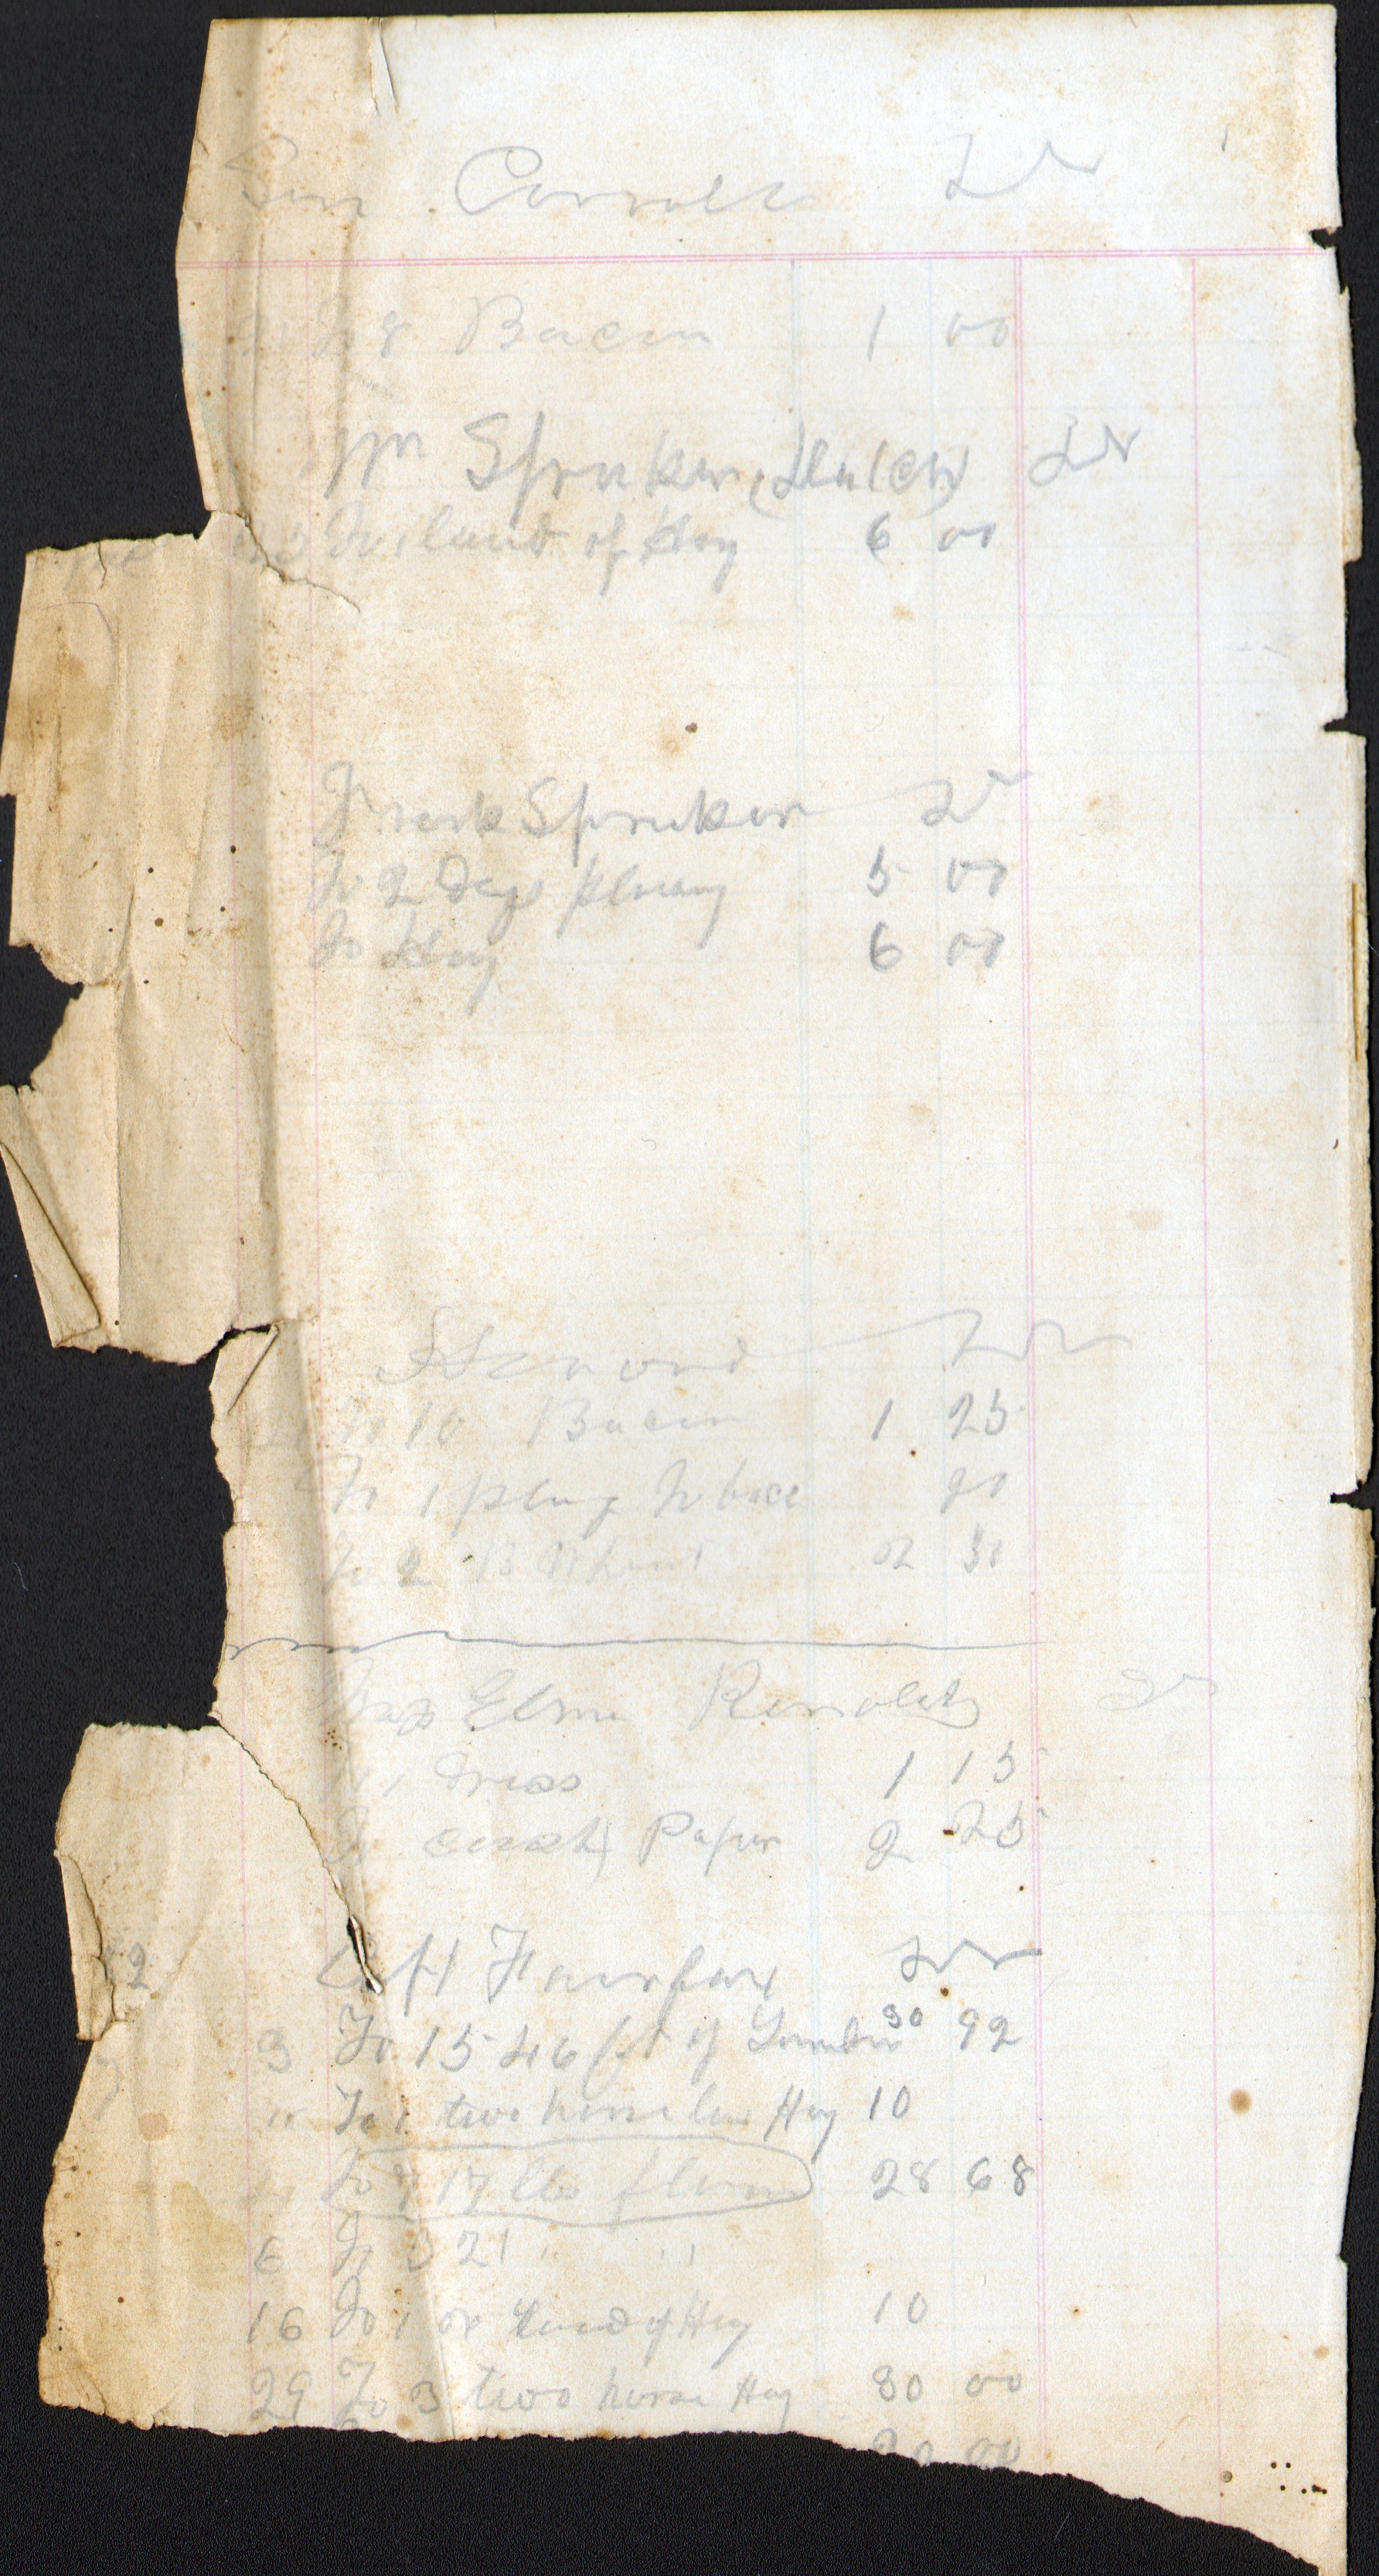 Carroll Dr
To 8 Bacon 1 00
Wm Spruker (Dutch) Dr
To 1 load of Hay 6 00
Frank Spruker Dr
To 2 Days plowing 5 00
To Hay 6 00
Dr
To 10 Bacon 1 25
To 1 plug Tobacc 20
To 2 B Wheat 2 30
Elmer Renolds Dr
To 1 Dress 1 15
To cash Paper 2 25
2 Capt Fairfax Dr
3 To 1546 ft of Lumber 30 92
To 1 two horse loa Hay 10
To 717 lbs flour 28 68
6 To 321 " "
16 To 1 ox load of Hay 10
29 To 3 two horse Hay 30 00
20 00